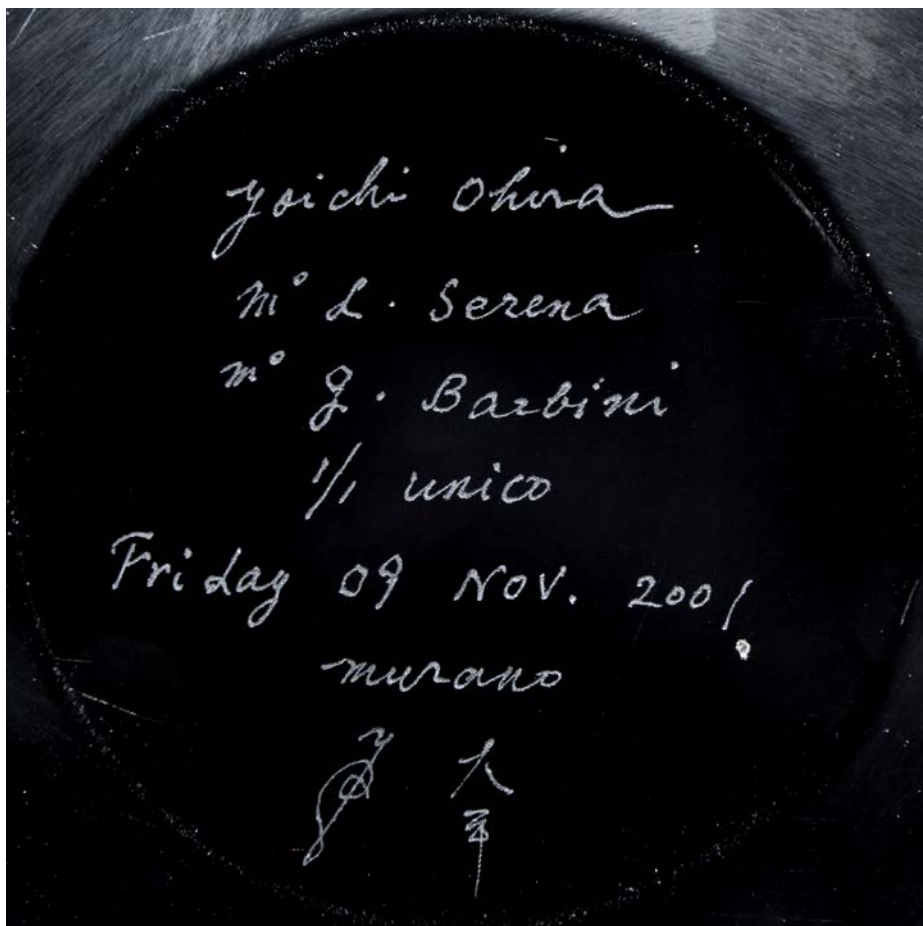 yoichi Ohira
mº L. Serena
mº g. Barbini
1/1 unico
Friday 09 Nov. 2001
murano
大
平